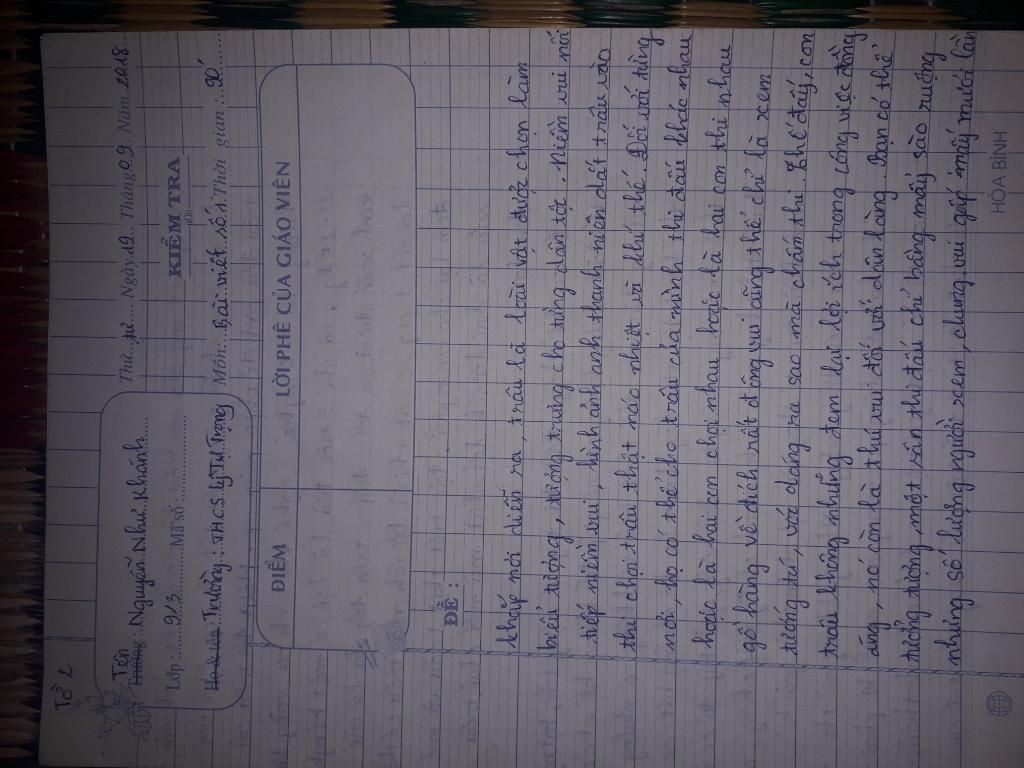 Tờ 2
Tên
Trường: Nguyễn Như Khánh
Lớp: 9/3 Mã số:
Họ & tên Trường: T.H.C.S Lý Tự Trọng
Thứ tư Ngày 19 Tháng 09 Năm 2018
KIỂM TRA
Môn: Bài viết số 1 Thời gian:
ĐIỂM
LỜI PHÊ CỦA GIÁO VIÊN
ĐỀ :
khắp nơi diễn ra, trâu là loài vật được chọn làm
biểu tượng, tượng trưng cho từng dân tộc. Niềm vui nối
tiếp niềm vui, hình ảnh anh thanh niên dắt trâu vào
thi chọi trâu thật náo nhiệt và khí thế. Đối với từng
nơi, họ có thể cho trâu của mình thi đấu khác nhau
hoặc là hai con chọi nhau hoặc là hai con thi nhau
gồ hàng về đích rất đông vui cũng thể chỉ là xem
tướng tá, vóc dáng ra sao mà chấm thi. Thế đấy, con
trâu không những đem lại lợi ích trong công việc đồng
áng, nó còn là thú vui đối với dân làng. Bạn có thể
tưởng tượng, một sân thi đấu chỉ bằng mấy sào ruộng
nhưng số lượng người xem, chung vui gấp mấy mươi lần
HÒA BÌNH